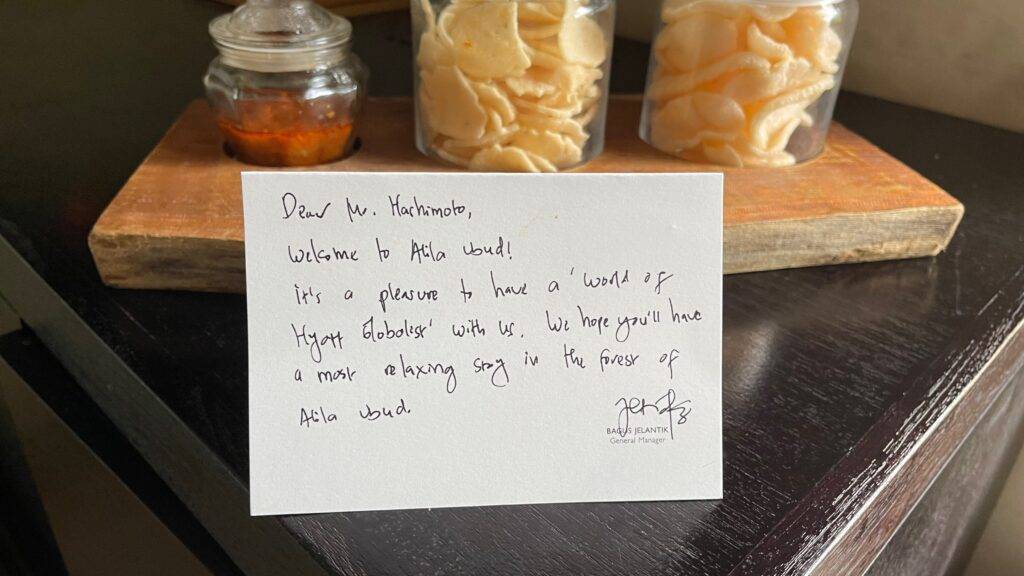 Dear Mr. Hachimoto,
Welcome to Alila Ubud!
it's a pleasure to have a 'World of
Hyatt Globalist' with us. We hope you'll have
a most relaxing stay in the forest of
Alila Ubud.
BAGUS JELANTIK
General Manager